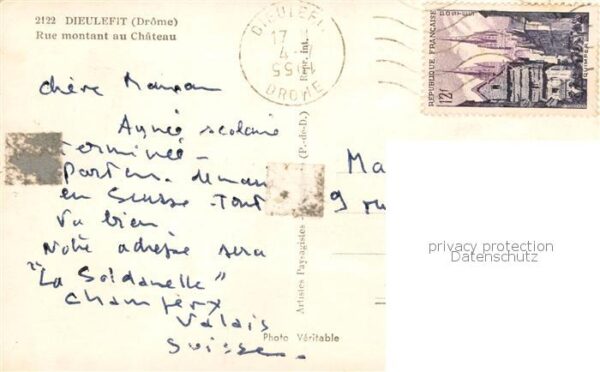 2122 DIEULEFIT (Drôme)
Rue montant au Château
DIEULEFIT
17
4-7
1955
DROME
RÉPUBLIQUE FRANÇAISE
POSTES
12F
Chère Maman
Année scolaire
terminée -
Partons demain
en Suisse - Tout
va bien.
Notre adresse sera
"La Soldanelle"
Champéry
Valais
Suisse.
Repr. int.
(P.-de-D.)
Artistes Paysagistes
Ma
9 ru
Photo Véritable
privacy protection
Datenschutz